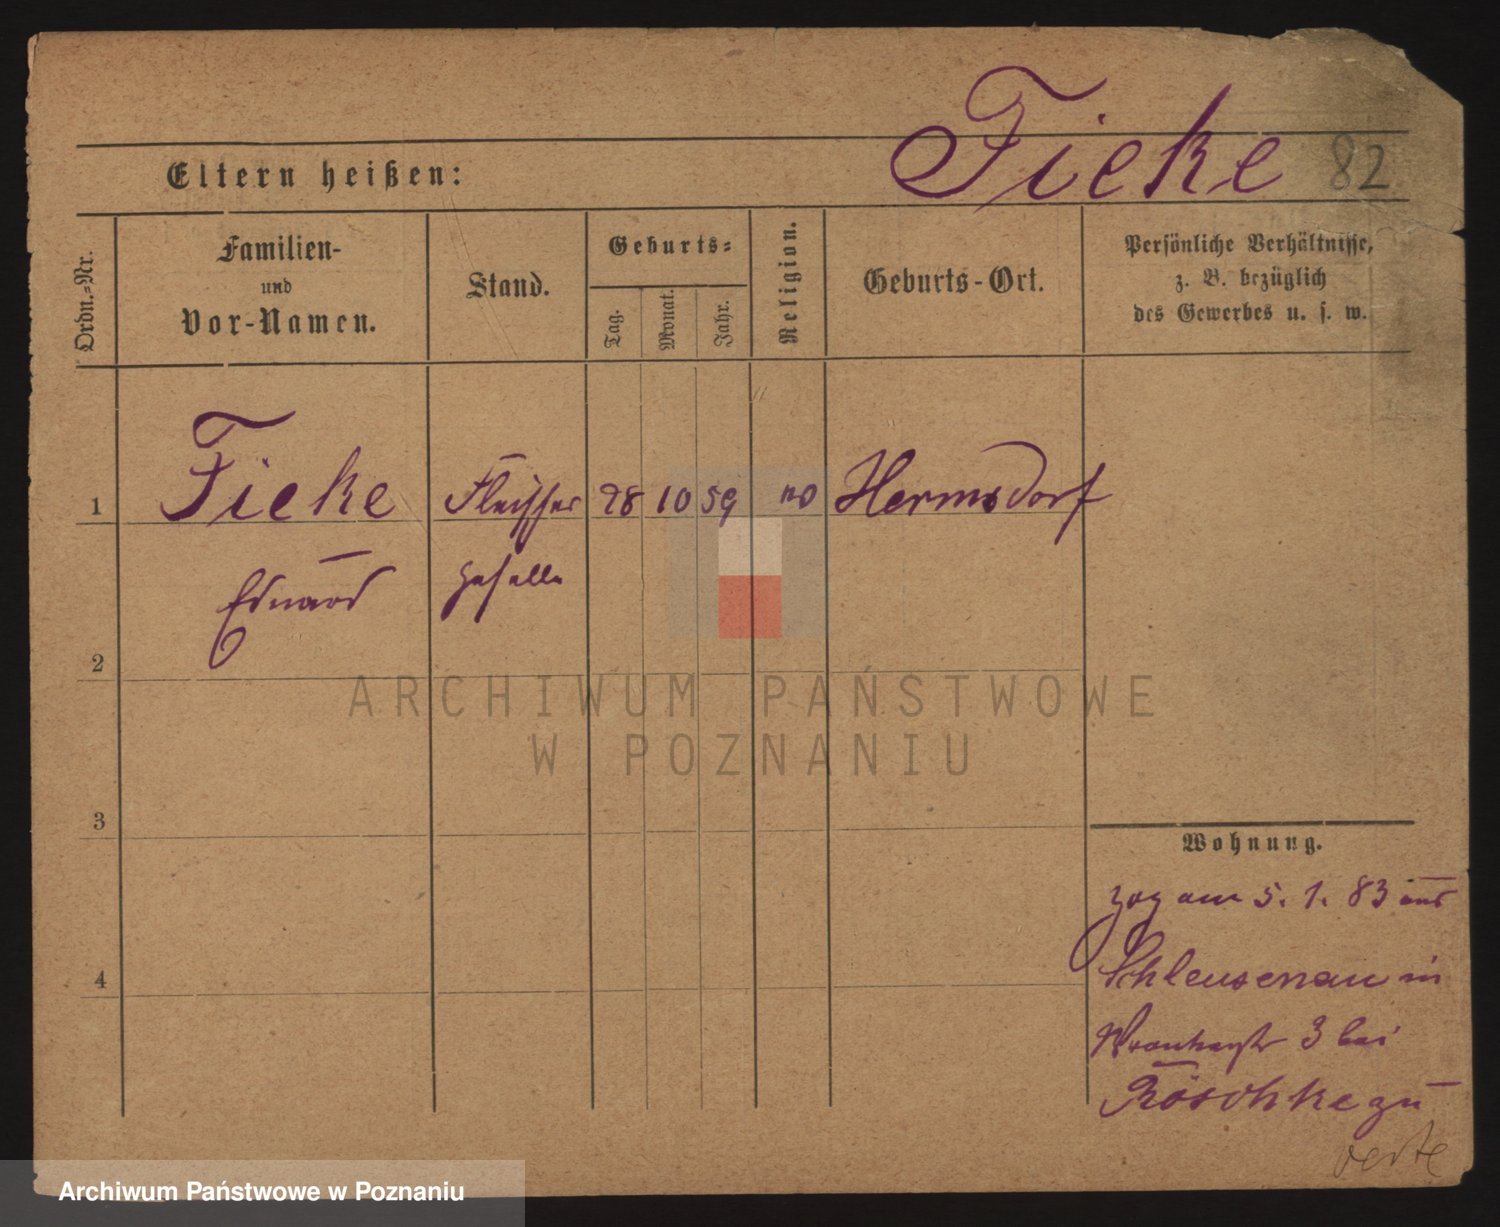 Ficke 82
Eltern heißen:
Ordn.-Nr.
Familien-
und
Vor-Namen.
Stand.
Geburts-
Tag.
Monat.
Jahr.
Religion.
Geburts-Ort.
Persönliche Verhältnisse,
z. B. bezüglich
des Gewerbes u. s. w.
1 Ficke Fleischer 28 10 59 Hermsdorf
Eduard geselle
2
3
4
ARCHIWUM PAŃSTWOWE
W POZNANIU
Wohnung.
zog am 5. 1. 83 aus
Schleusenau in
3 bei
Röschke zu
verte
Archiwum Państwowe w Poznaniu